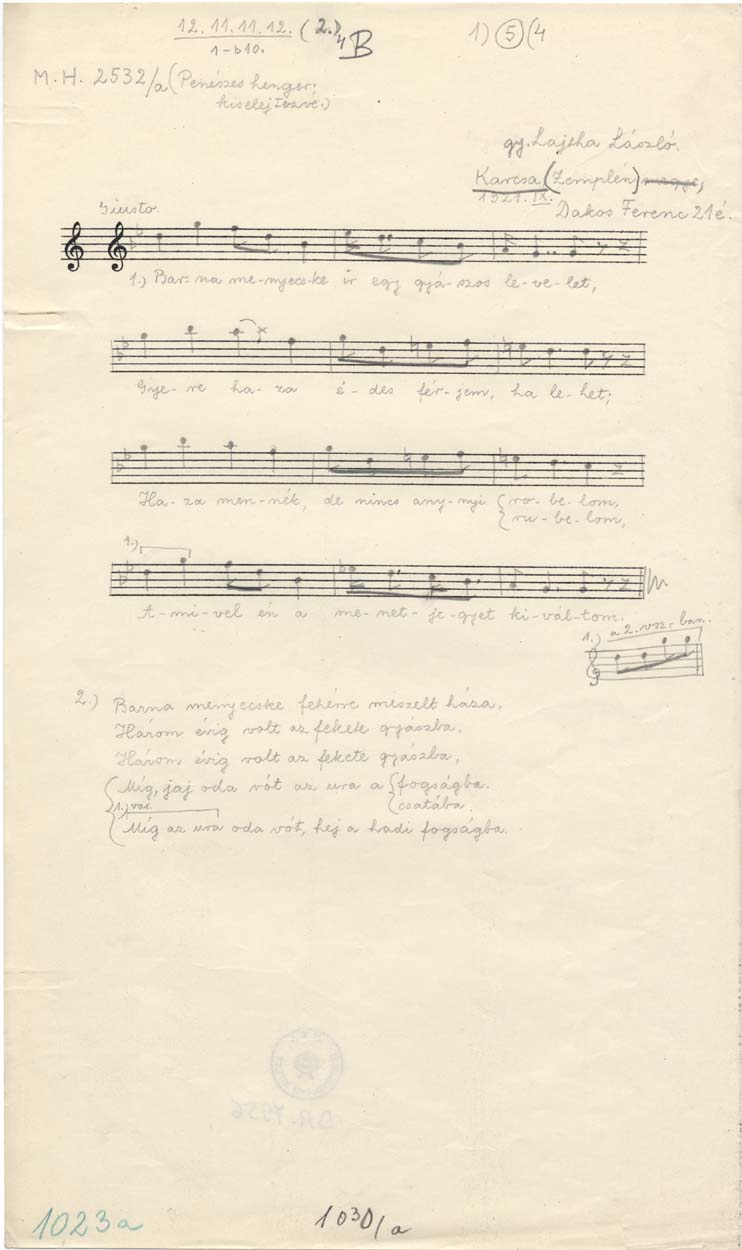 12. 11. 11. 12. (2.)4 B
1) 5 (4
1-b10.
M. H. 2532/a (Penészes henger;
kiselejtezve.)
gy. Lajtha László.
Karcsa (Zemplén) megye,
1921. IX.
Dakos Ferenc 21é.
Giusto.
1.) Bar-na me-nyecs-ke ir egy gyá-szos le-ve-let,
Gye-re ha-za é-des fér-jem, ha le-het;
Ha-za men-nék, de nincs any-nyi { ro-be-lom,
{ ru-be-lom,
1.)
A-mi-vel én a me-net-je-gyet ki-vál-tom.
1.) a 2. vsz:-ban.
2.) Barna menyecske fehérre meszelt háza,
Három évig volt az fekete gyászba.
Három évig volt az fekete gyászba,
{ Míg, jaj oda vót az ura a { fogságba.
{ csatába.
1.) var.
{ Míg az ura oda vót, hej a hadi fogságba.
BR-7956
1023a
1030/a